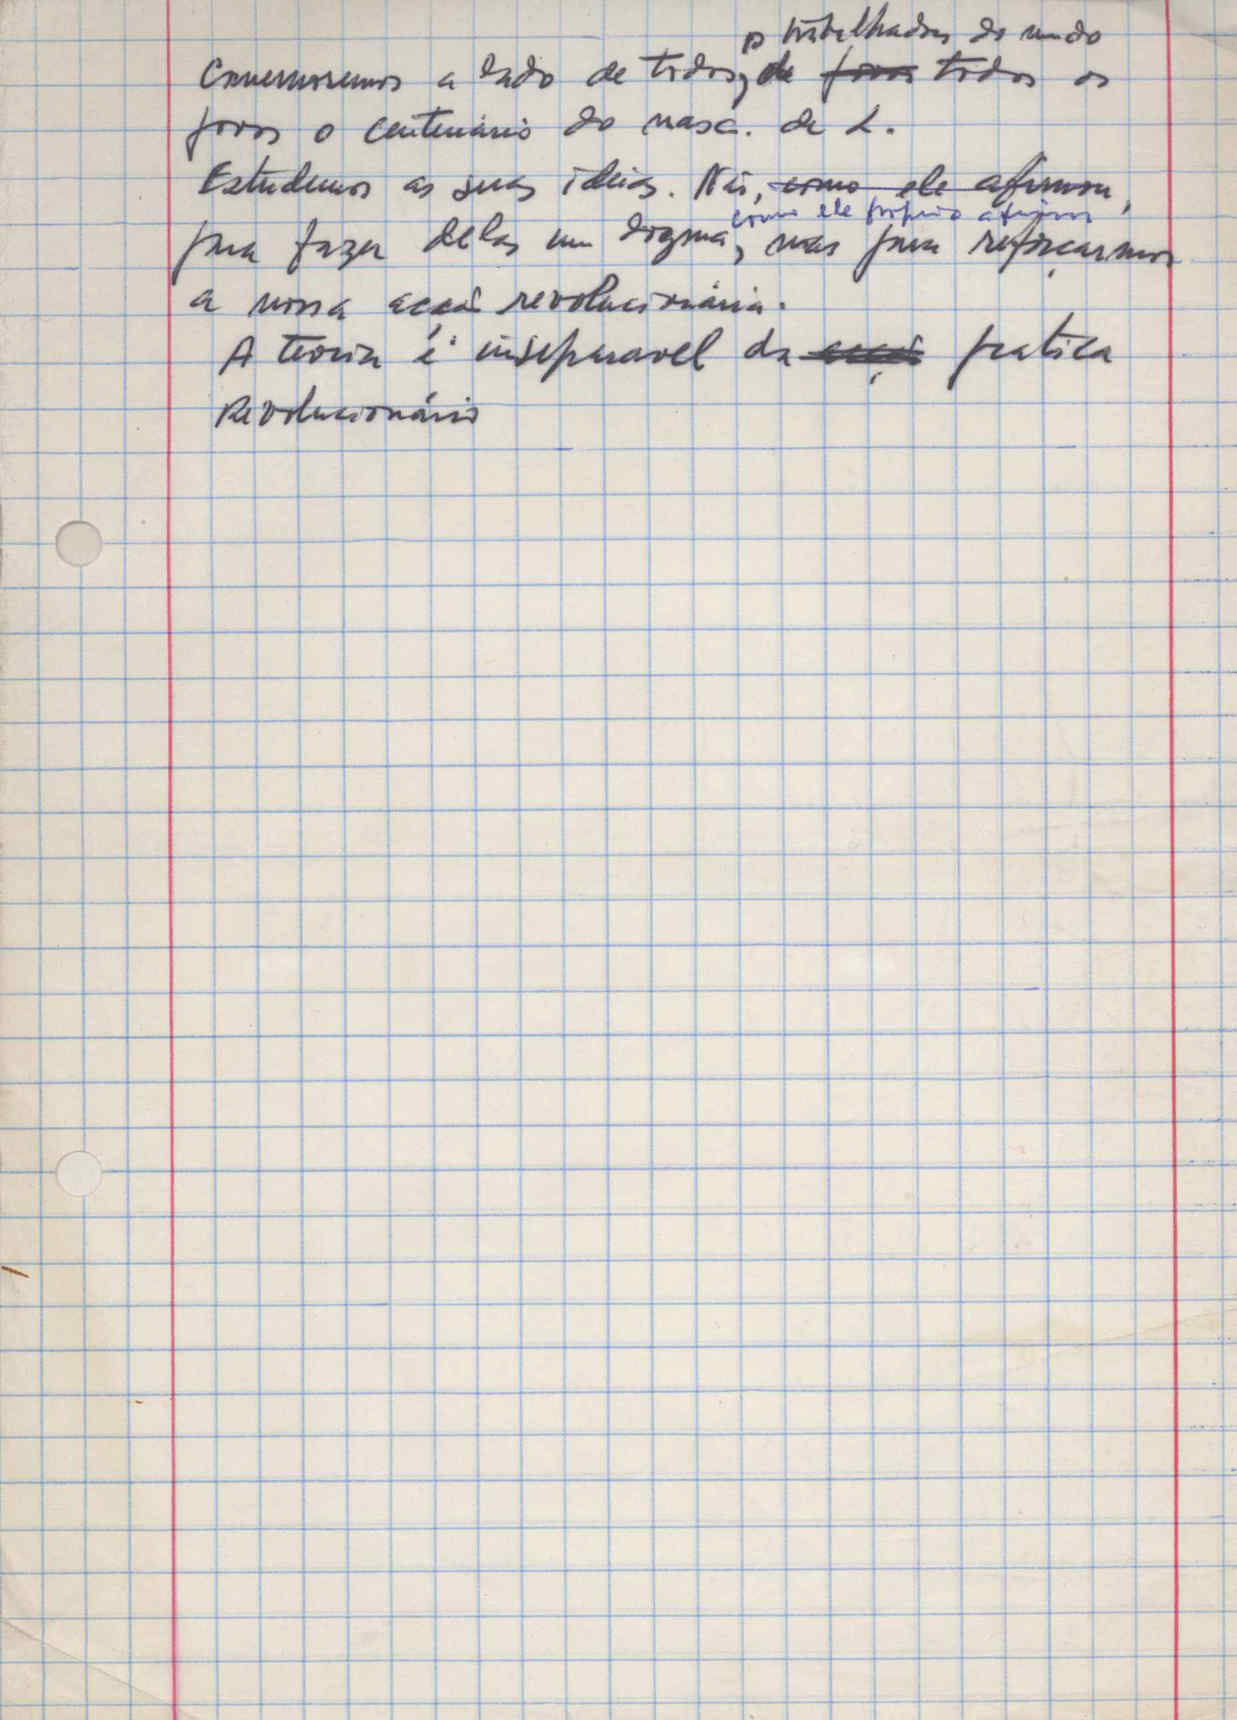 os trabalhadores do mundo
Comemoremos a lado de todos, de povos todos os
povos o centenário do nasc. de L.
Estudemos as suas ideias. Não, como ele afirmou,
como ele próprio afirmou
para fazer delas um dogma, mas para reforçarmos
a nossa acção revolucionária.
A teoria é inseparavel da acção pratica
Revolucionário